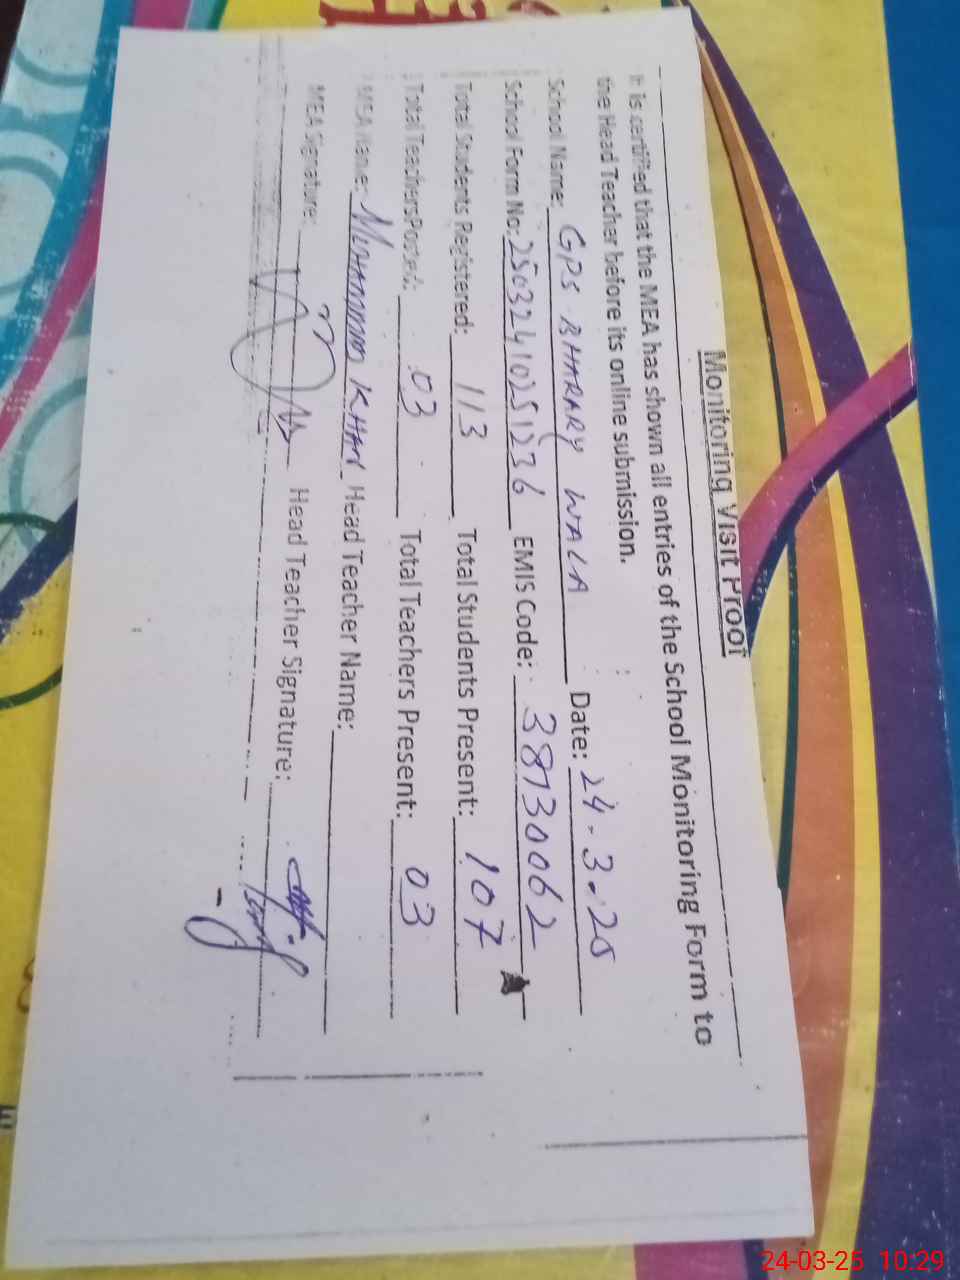 Monitoring Visit Proof
It is certified that the MEA has shown all entries of the School Monitoring Form to
the Head Teacher before its online submission.
School Name: GPS BHARARY WALA Date: 24-3-25
School Form No: 25032410251236 EMIS Code: 38730062
Total Students Registered: 113 Total Students Present: 107
Total Teachers Posted: 03 Total Teachers Present: 03
MEA Name: MUHAMMAD KHAN Head Teacher Name:
MEA Signature: Head Teacher Signature:
24-03-25 10:29